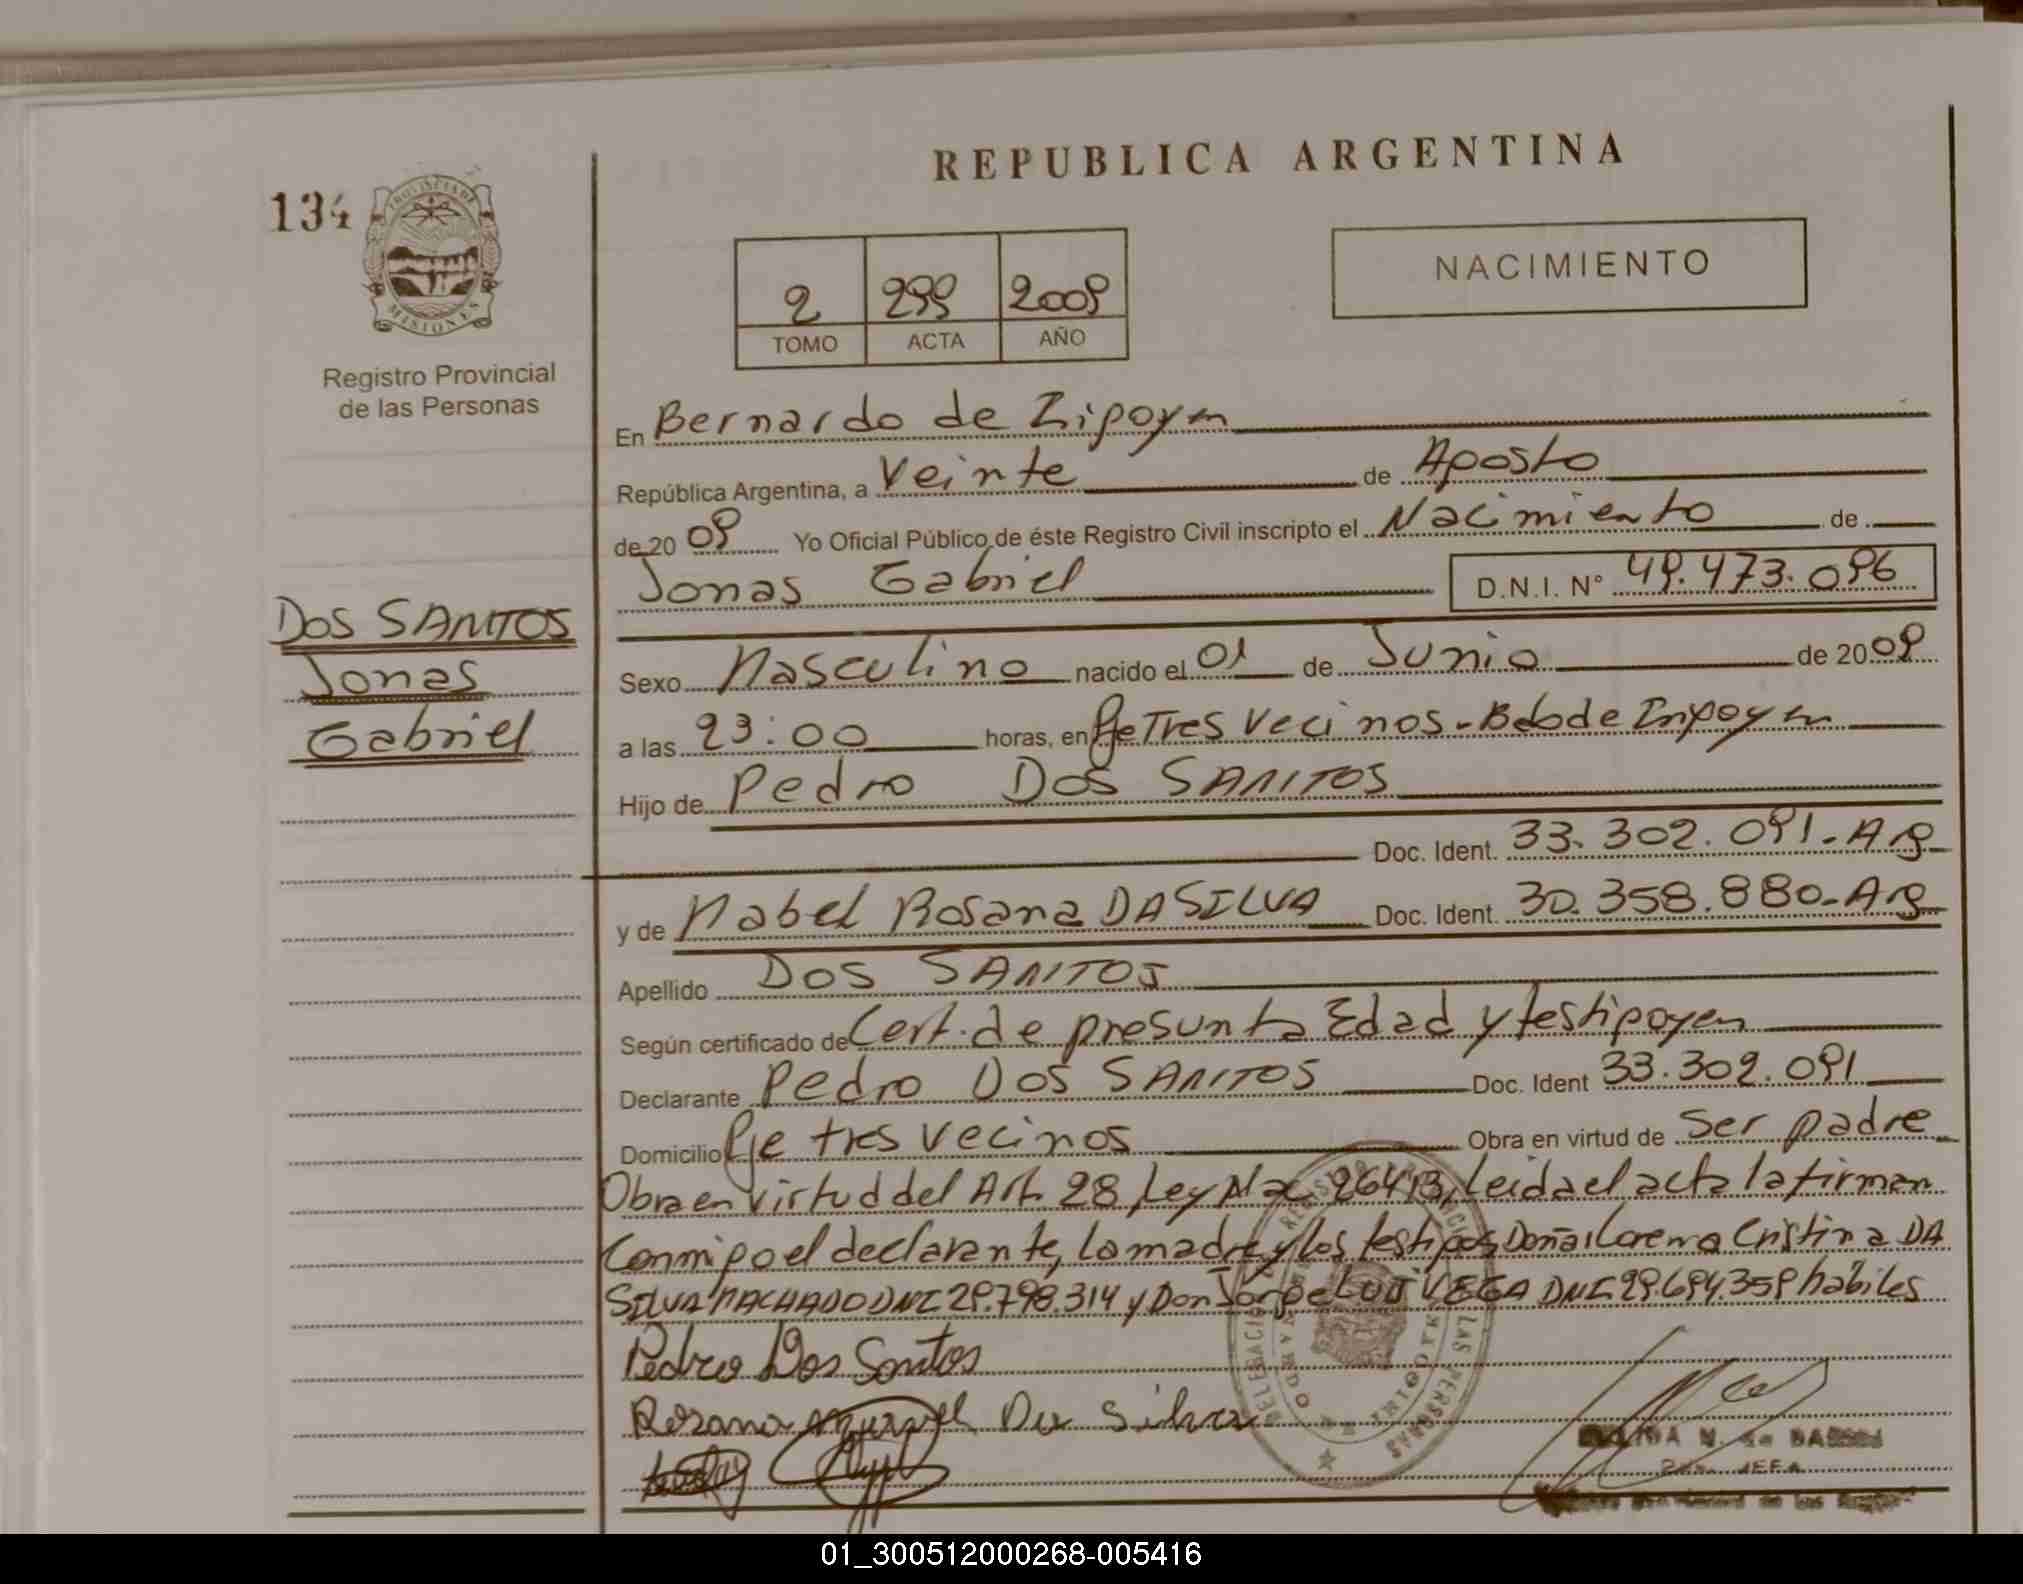 REPUBLICA ARGENTINA
134
PROVINCIA DE
MISIONES
Registro Provincial
de las Personas
2 299 2009
TOMO ACTA AÑO
NACIMIENTO
En Bernardo de Irigoyen
República Argentina, a Veinte de Agosto
de 20 09 Yo Oficial Público de éste Registro Civil inscripto el Nacimiento de
Jonas Gabriel D.N.I. N° 49.473.096
DOS SANTOS
Jonas
Gabriel
Sexo Masculino nacido el 01 de Junio de 20 09
a las 23:00 horas, en Pje Tres Vecinos - Bdo de Irigoyen
Hijo de Pedro DOS SANTOS
Doc. Ident. 33.302.091 - Arg
y de Mabel Rosana DA SILVA Doc. Ident. 30.358.880 - Arg
Apellido DOS SANTOS
Según certificado de Cert. de presunta Edad y testigoyen
Declarante Pedro DOS SANTOS Doc. Ident 33.302.091
Domicilio Pje tres vecinos Obra en virtud de ser padre
Obra en virtud del Art. 28 Ley Nac 26413, Leida el acta la firman
Conmigo el declarante, la madre y los testigos Doña Lorena Cristina DA
SILVA MACHADO DNI 29.798.314 y Don Jorge LUIS VEGA DNI 29.694.359 habiles
Pedro Dos Santos
Rosana Da Silva
DE LAS PERSONAS
JEFA
01_300512000268-005416